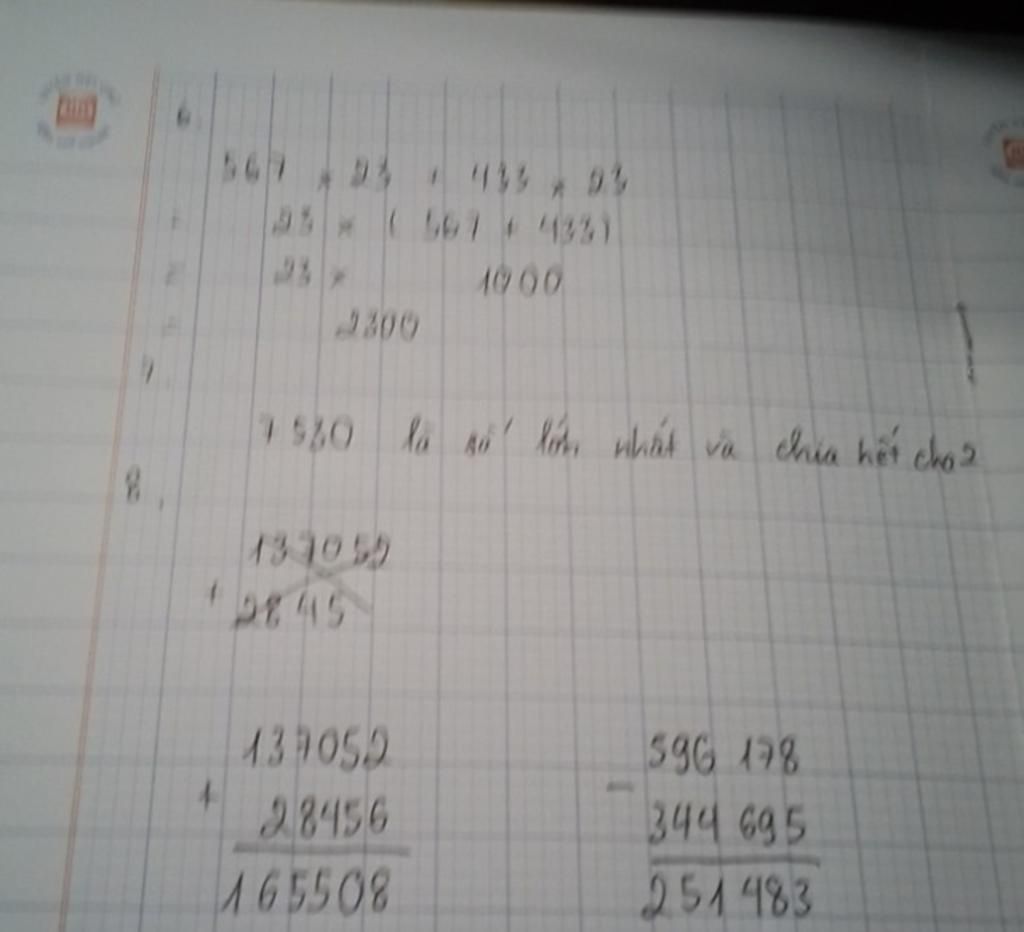 6.
567 × 23 + 433 × 23
= 23 × ( 567 + 433)
= 23 × 1000
= 2300
7.
7530 là số lớn nhất và chia hết cho 2
8.
137052
+ 2845
137052
+ 28456
165508
596 178
- 344 695
251 483